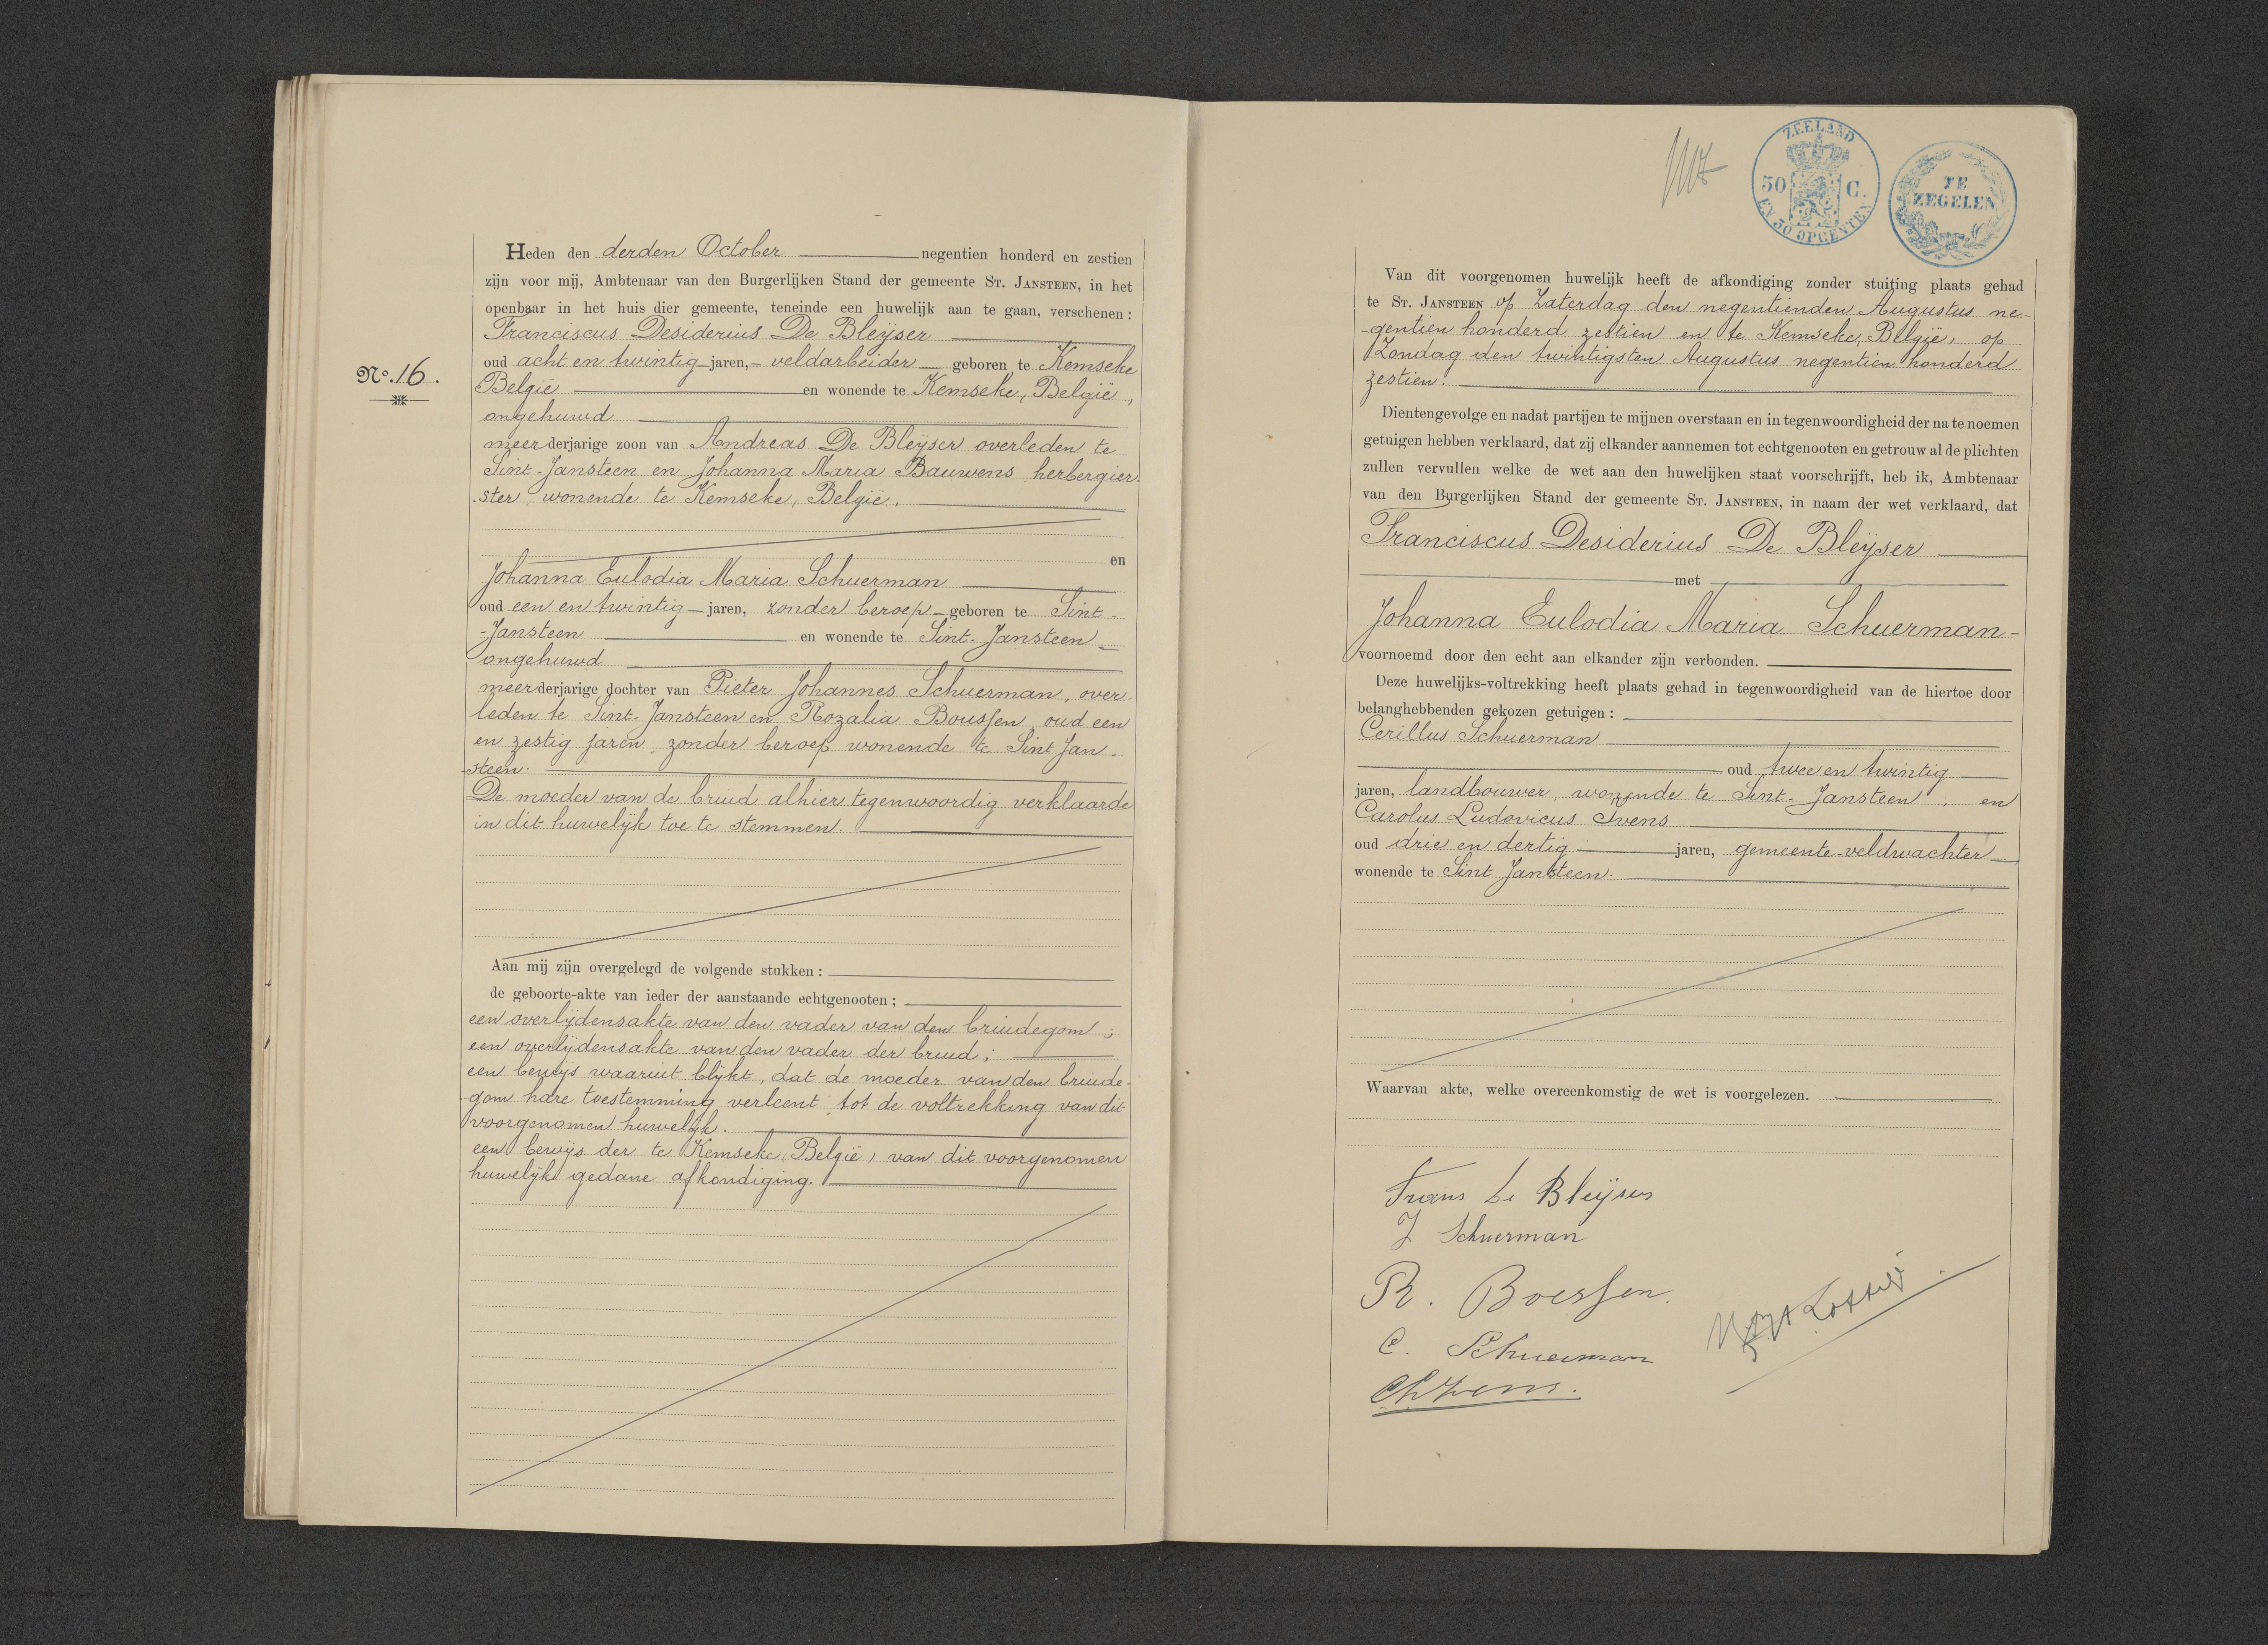 Nº. 16.
Heden den derden October negentien honderd en zestien
zijn voor mij, Ambtenaar van den Burgerlijken Stand der gemeente St. Jansteen, in het
openbaar in het huis dier gemeente, teneinde een huwelijk aan te gaan, verschenen:
Franciscus Desiderius De Bleijser
oud acht en twintig jaren, veldarbeider geboren te Kemseke
België en wonende te Kemseke, België,
ongehuwd
meerderjarige zoon van Andreas De Bleijser overleden te
Sint-Jansteen en Johanna Maria Bauwens herbergier-
-ster wonende te Kemseke, België.
en
Johanna Eulodia Maria Schuerman
oud een en twintig jaren, zonder beroep geboren te Sint-
-Jansteen en wonende te Sint-Jansteen
ongehuwd
meerderjarige dochter van Pieter Johannes Schuerman, over-
leden te Sint-Jansteen en Rozalia Boussen, oud een
en zestig jaren, zonder beroep wonende te Sint Jan-
-steen.
De moeder van de bruid alhier tegenwoordig verklaarde
in dit huwelijk toe te stemmen.
Aan mij zijn overgelegd de volgende stukken:
de geboorte-akte van ieder der aanstaande echtgenooten;
een overlijdensakte van den vader van den bruidegom;
een overlijdensakte van den vader der bruid;
een bewijs waaruit blijkt, dat de moeder van den bruide-
-gom hare toestemming verleent tot de voltrekking van dit
voorgenomen huwelijk.
een bewijs der te Kemseke (België) van dit voorgenomen
huwelijk gedane afkondiging.
ZEELAND
50 C.
EN 50 OPCENTEN
TE
ZEGELEN
Van dit voorgenomen huwelijk heeft de afkondiging zonder stuiting plaats gehad
te St. Jansteen op Zaterdag den negentienden Augustus ne-
-gentien honderd zestien en te Kemseke, België, op
Zondag den twintigsten Augustus negentien honderd
zestien.
Dientengevolge en nadat partijen te mijnen overstaan en in tegenwoordigheid der na te noemen
getuigen hebben verklaard, dat zij elkander aannemen tot echtgenooten en getrouw al de plichten
zullen vervullen welke de wet aan den huwelijken staat voorschrijft, heb ik, Ambtenaar
van den Burgerlijken Stand der gemeente St. Jansteen, in naam der wet verklaard, dat
Franciscus Desiderius De Bleijser
met
Johanna Eulodia Maria Schuerman-
voornoemd door den echt aan elkander zijn verbonden.
Deze huwelijks-voltrekking heeft plaats gehad in tegenwoordigheid van de hiertoe door
belanghebbenden gekozen getuigen:
Cerillus Schuerman
oud twee en twintig
jaren, landbouwer, wonende te Sint-Jansteen, en
Carolus Ludovicus Ivens
oud drie en dertig jaren, gemeente-veldwachter
wonende te Sint Jansteen.
Waarvan akte, welke overeenkomstig de wet is voorgelezen.
Frans De Bleijser
J Schuerman
R. Boessen.
C. Schuerman